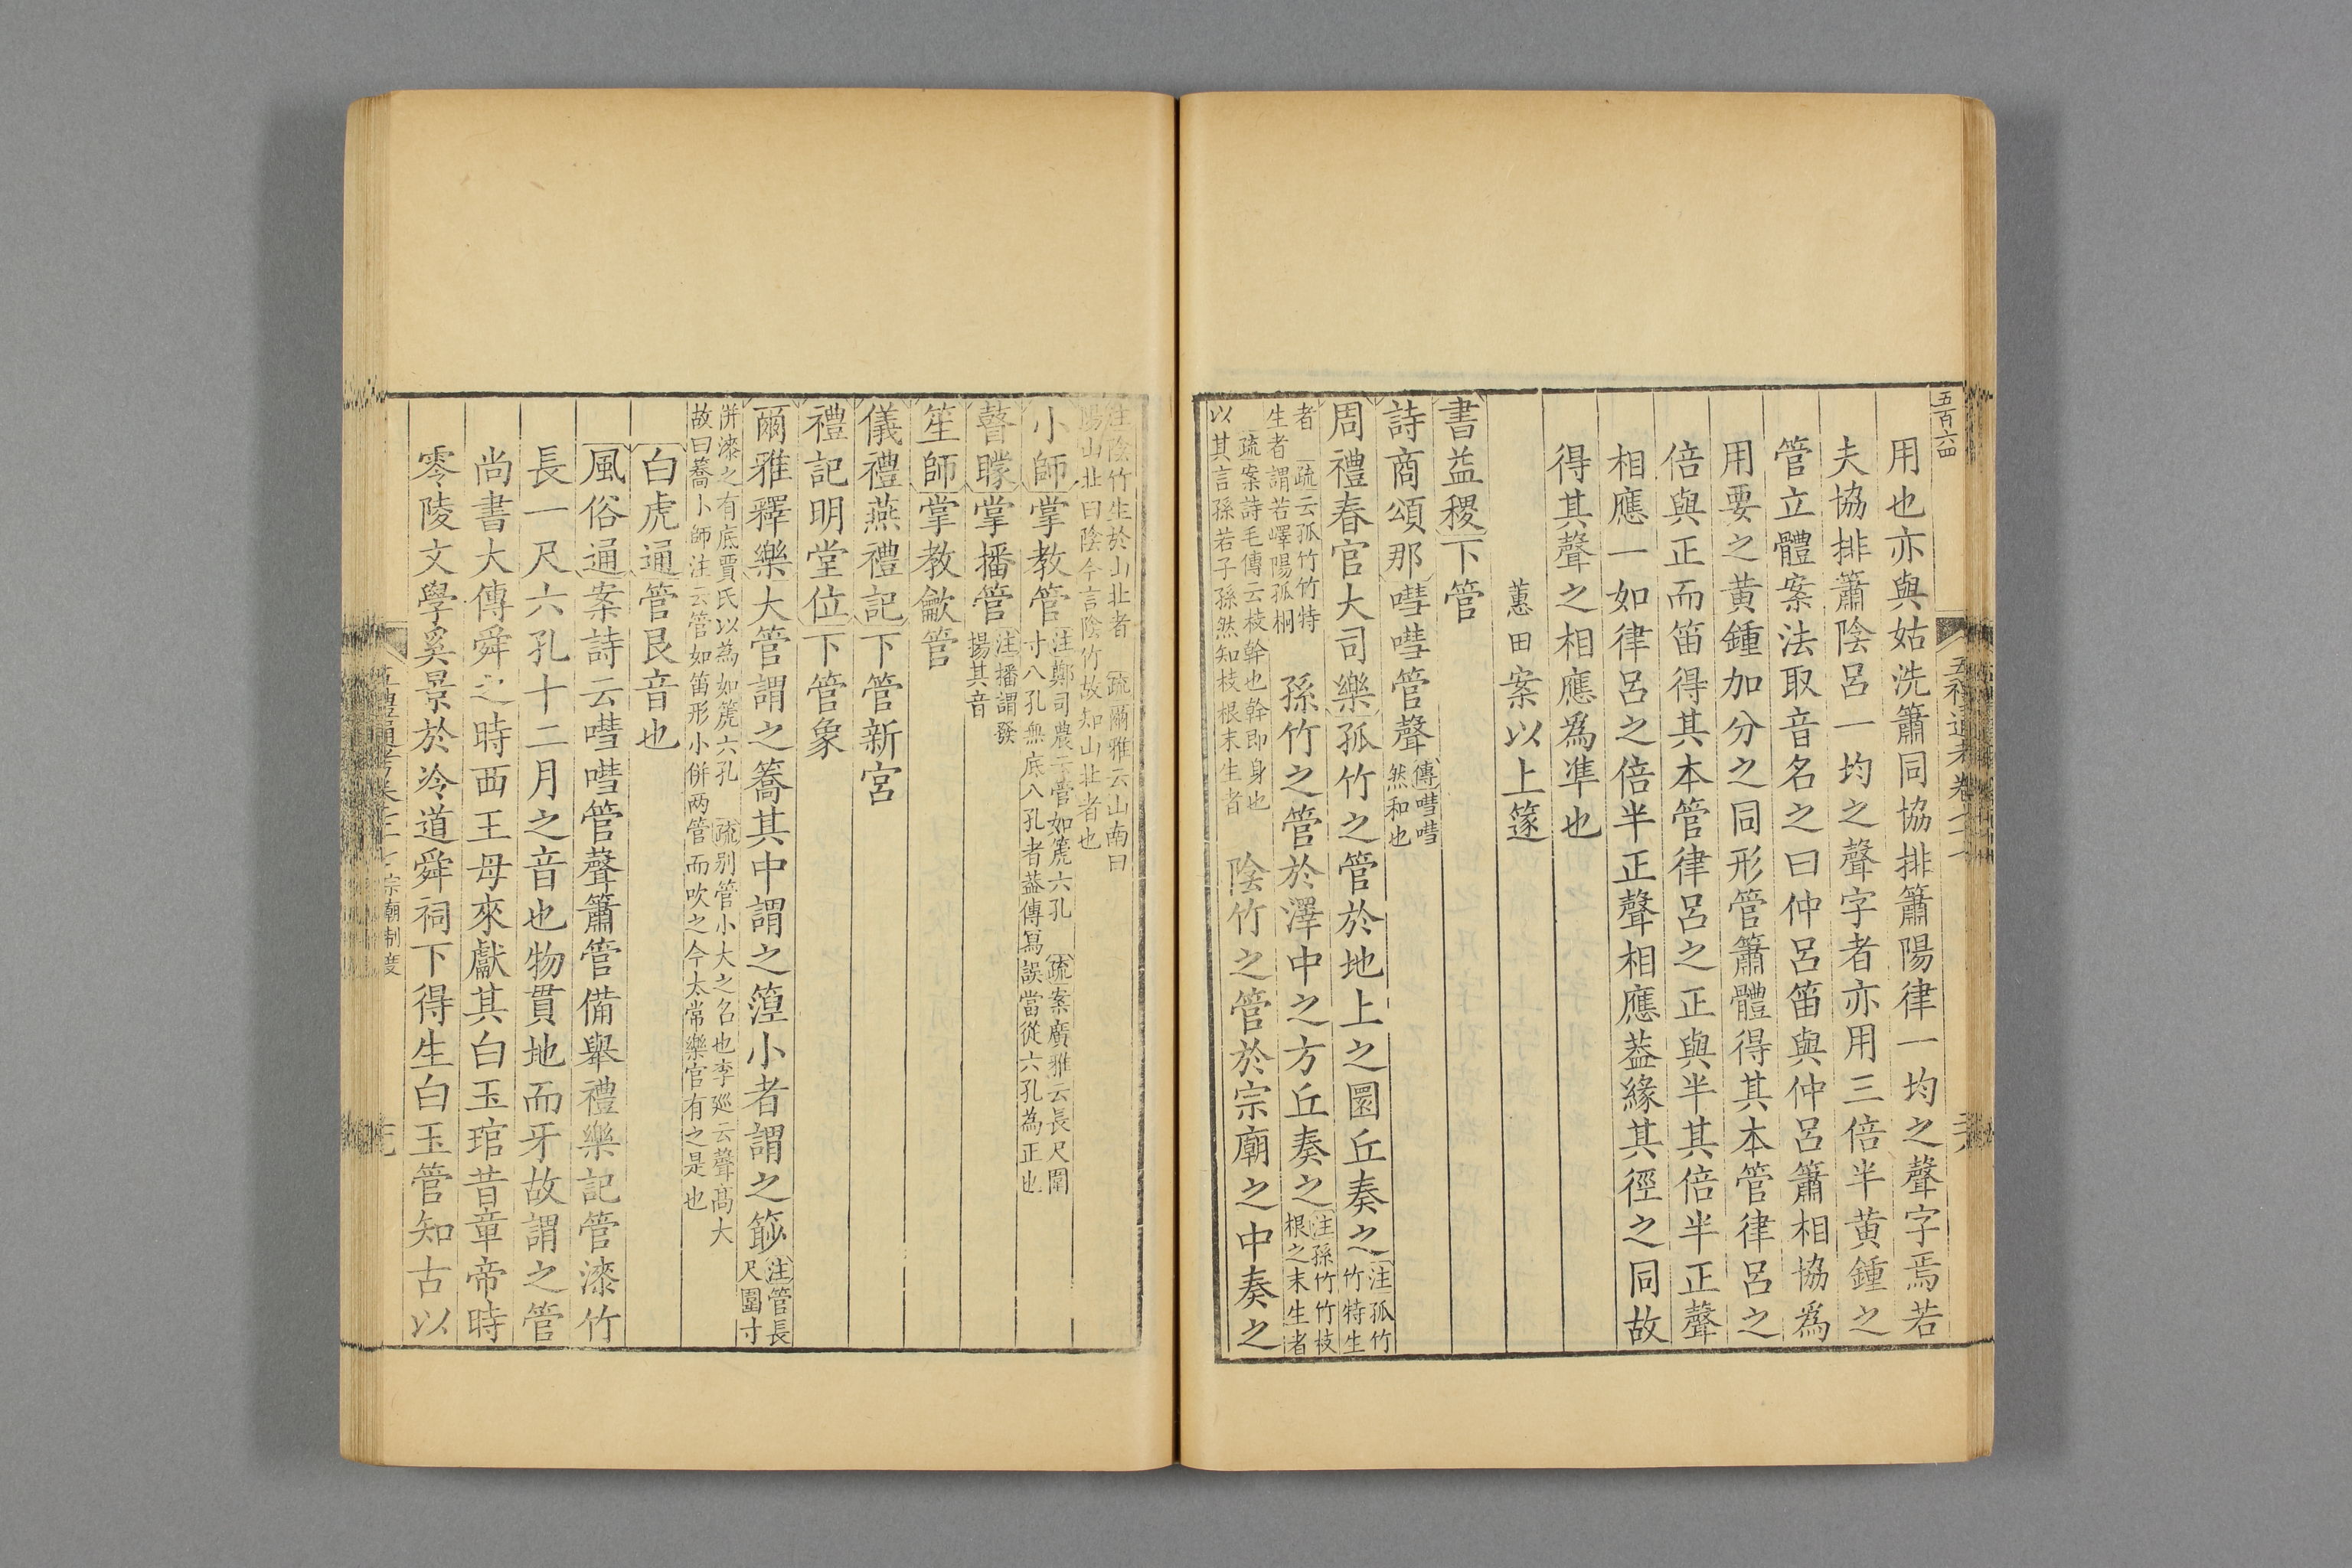 五百六四
用也亦與姑洗簫同協排簫陽律一均之聲字焉若
夫協排簫陰呂一均之聲字者亦用三倍半黄鍾之
管立體案法取音名之曰仲呂笛與仲呂簫相協爲
用要之黄鍾加分之同形管簫體得其本管律呂之
倍與正而笛得其本管律呂之正與半其倍半正聲
相應一如律呂之倍半正聲相應葢緣其徑之同故
得其聲之相應爲凖也
蕙田案以上篴
書益稷下管
詩商頌那嘒嘒管聲傳嘒嘒
然和也
周禮春官大司樂孤竹之管於地上之圜丘奏之注孤竹
竹特生
者 疏云孤竹竹特
生者謂若嶧陽孤桐
孫竹之管於澤中之方丘奏之注孫竹竹枝
根之末生者
疏案詩毛傳云枝幹也幹即身也
以其言孫若子孫然知枝根末生者
陰竹之管於宗廟之中奏之
注陰竹生於山北者 疏爾雅云山南曰
陽山北曰陰今言陰竹故知山北者也
小師掌教管注鄭司農云管如篪六孔 疏案廣雅云長尺圍
寸八孔無底八孔者葢傳寫誤當從六孔為正也
瞽矇掌播管注播謂發
揚其音
笙師掌教龡管
儀禮燕禮記下管新宮
禮記明堂位下管象
爾雅釋樂大管謂之簥其中謂之篞小者謂之篎注管長
尺圍寸
併漆之有底賈氏以為如篪六孔 疏别管小大之名也李廵云聲高大
故曰簥卜師注云管如笛形小併两管而吹之今太常樂官有之是也
白虎通管艮音也
風俗通案詩云嘒嘒管聲簫管備舉禮樂記管漆竹
長一尺六孔十二月之音也物貫地而牙故謂之管
尚書大傳舜之時西王母來獻其白玉琯昔章帝時
零陵文學奚景於冷道舜祠下得生白玉管知古以